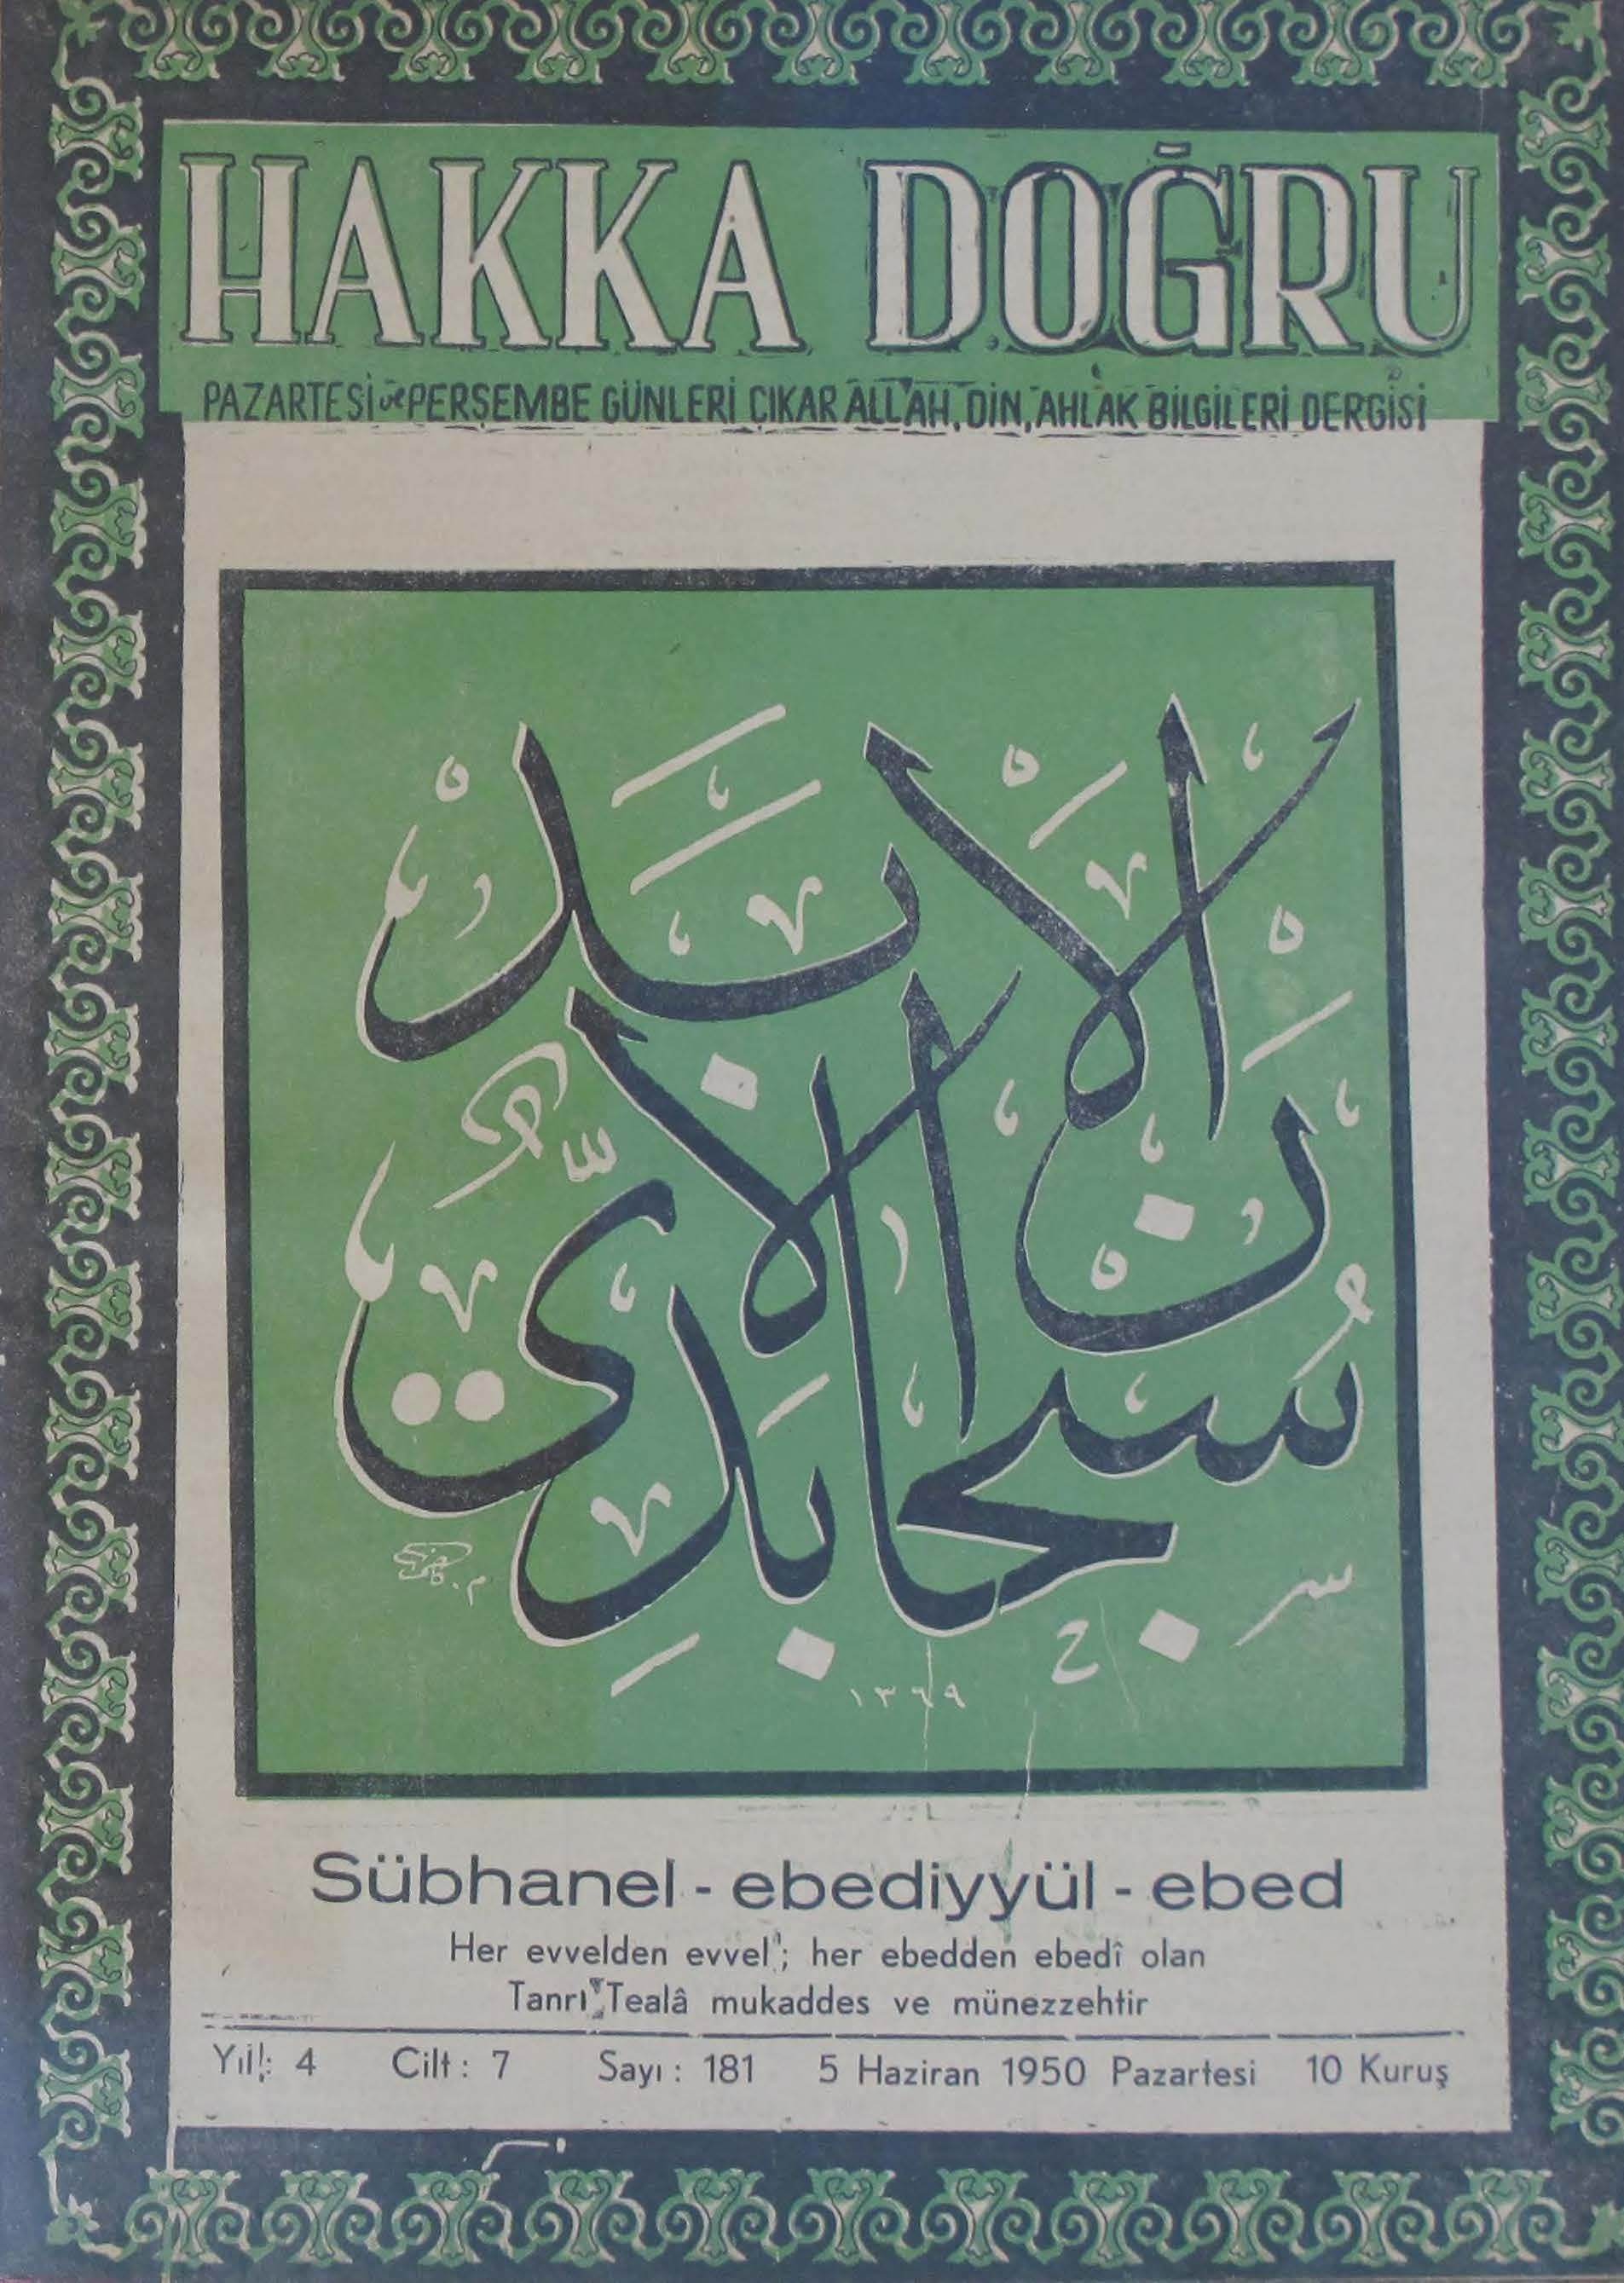 HAKKA DOĞRU
PAZARTESİ ve PERŞEMBE GÜNLERİ ÇIKAR ALLAH, DİN, AHLAK BİLGİLERİ DERGİSİ
سُبْحَانَ الْاَبَدِيِّ الْاَبَدِ
١٣٦٩
Sübhanel - ebediyyül - ebed
Her evvelden evvel; her ebedden ebedî olan
Tanrı Tealâ mukaddes ve münezzehtir
Yıl: 4 Cilt: 7 Sayı: 181 5 Haziran 1950 Pazartesi 10 Kuruş